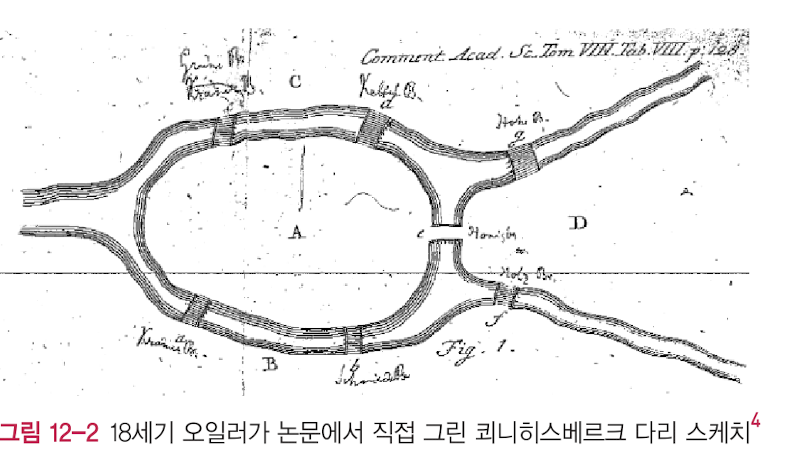 Comment. Acad. Sc. Tom VIII. Tab. VIII. p. 128.
Grüne Br.
C
Kattel B.
d
Hohe Br.
g
A
e
Honigbr.
D
Holz Br.
f
a
Krämer Br.
B
b
Schmiede Br.
Fig. 1.
그림 12-2 18세기 오일러가 논문에서 직접 그린 쾨니히스베르크 다리 스케치4